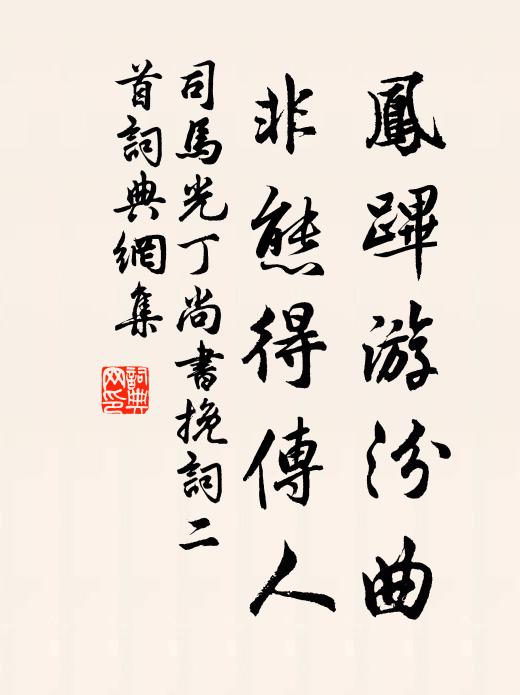 鳳蹕游汾曲
非熊得傳人
司馬光丁尚書挽詞二
首詞典網集
詞典
网